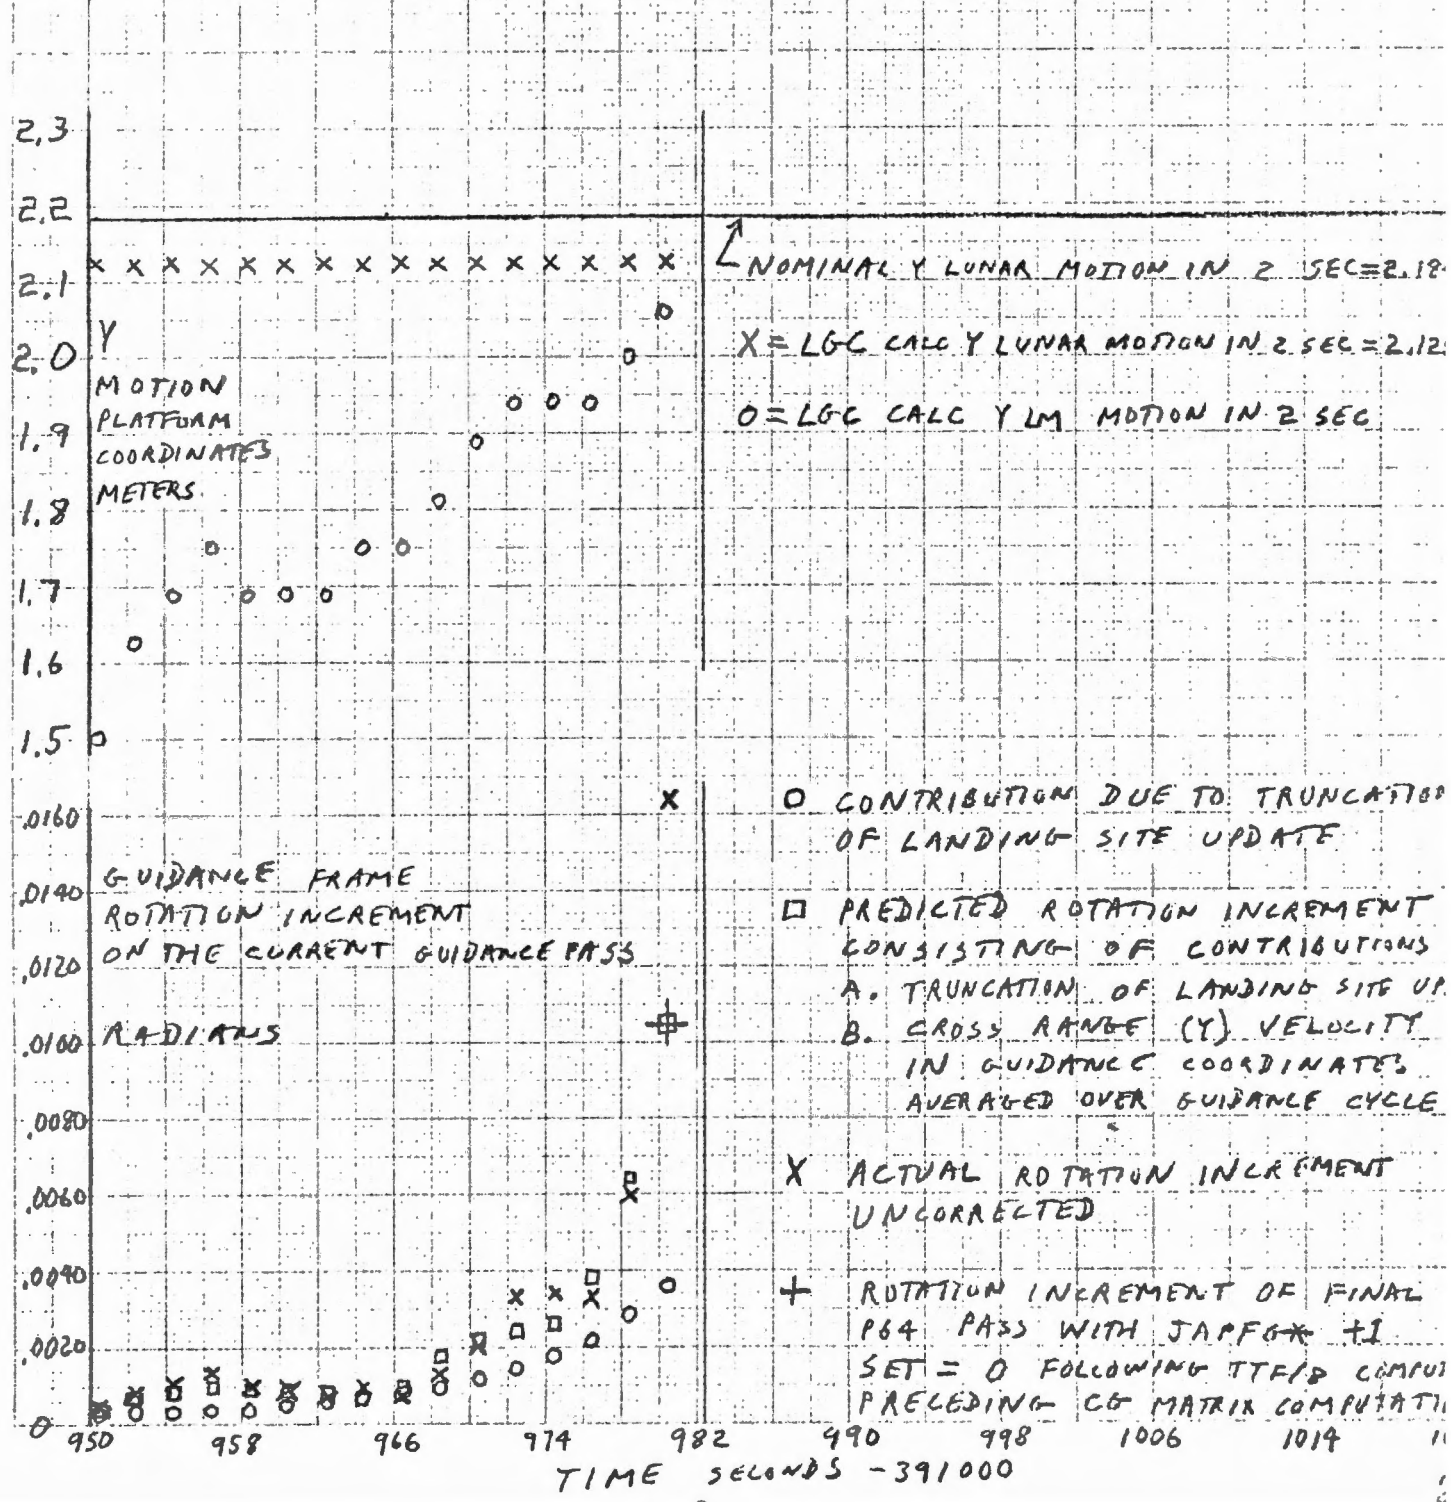 2.3
2.2
2.1
2.0
1.9
1.8
1.7
1.6
1.5
Y
MOTION
PLATFORM
COORDINATES
METERS
NOMINAL Y LUNAR MOTION IN 2 SEC=2.18
X = LGC CALC Y LUNAR MOTION IN 2 SEC = 2.12
O = LGC CALC Y LM MOTION IN 2 SEC
.0160
.0140
.0120
.0100
.0080
.0060
.0040
.0020
0
GUIDANCE FRAME
ROTATION INCREMENT
ON THE CURRENT GUIDANCE PASS
RADIANS
O CONTRIBUTION DUE TO TRUNCATION
OF LANDING SITE UPDATE
□ PREDICTED ROTATION INCREMENT
CONSISTING OF CONTRIBUTIONS
A. TRUNCATION OF LANDING SITE UP
B. CROSS RANGE (Y) VELOCITY
IN GUIDANCE COORDINATES
AVERAGED OVER GUIDANCE CYCLE
X ACTUAL ROTATION INCREMENT
UNCORRECTED
+ ROTATION INCREMENT OF FINAL
P64 PASS WITH JAPFG* +I
SET = 0 FOLLOWING TTF/8 COMPU
PRECEDING CG MATRIX COMPUTATI
950 958 966 974 982 990 998 1006 1014
TIME SECONDS -391000